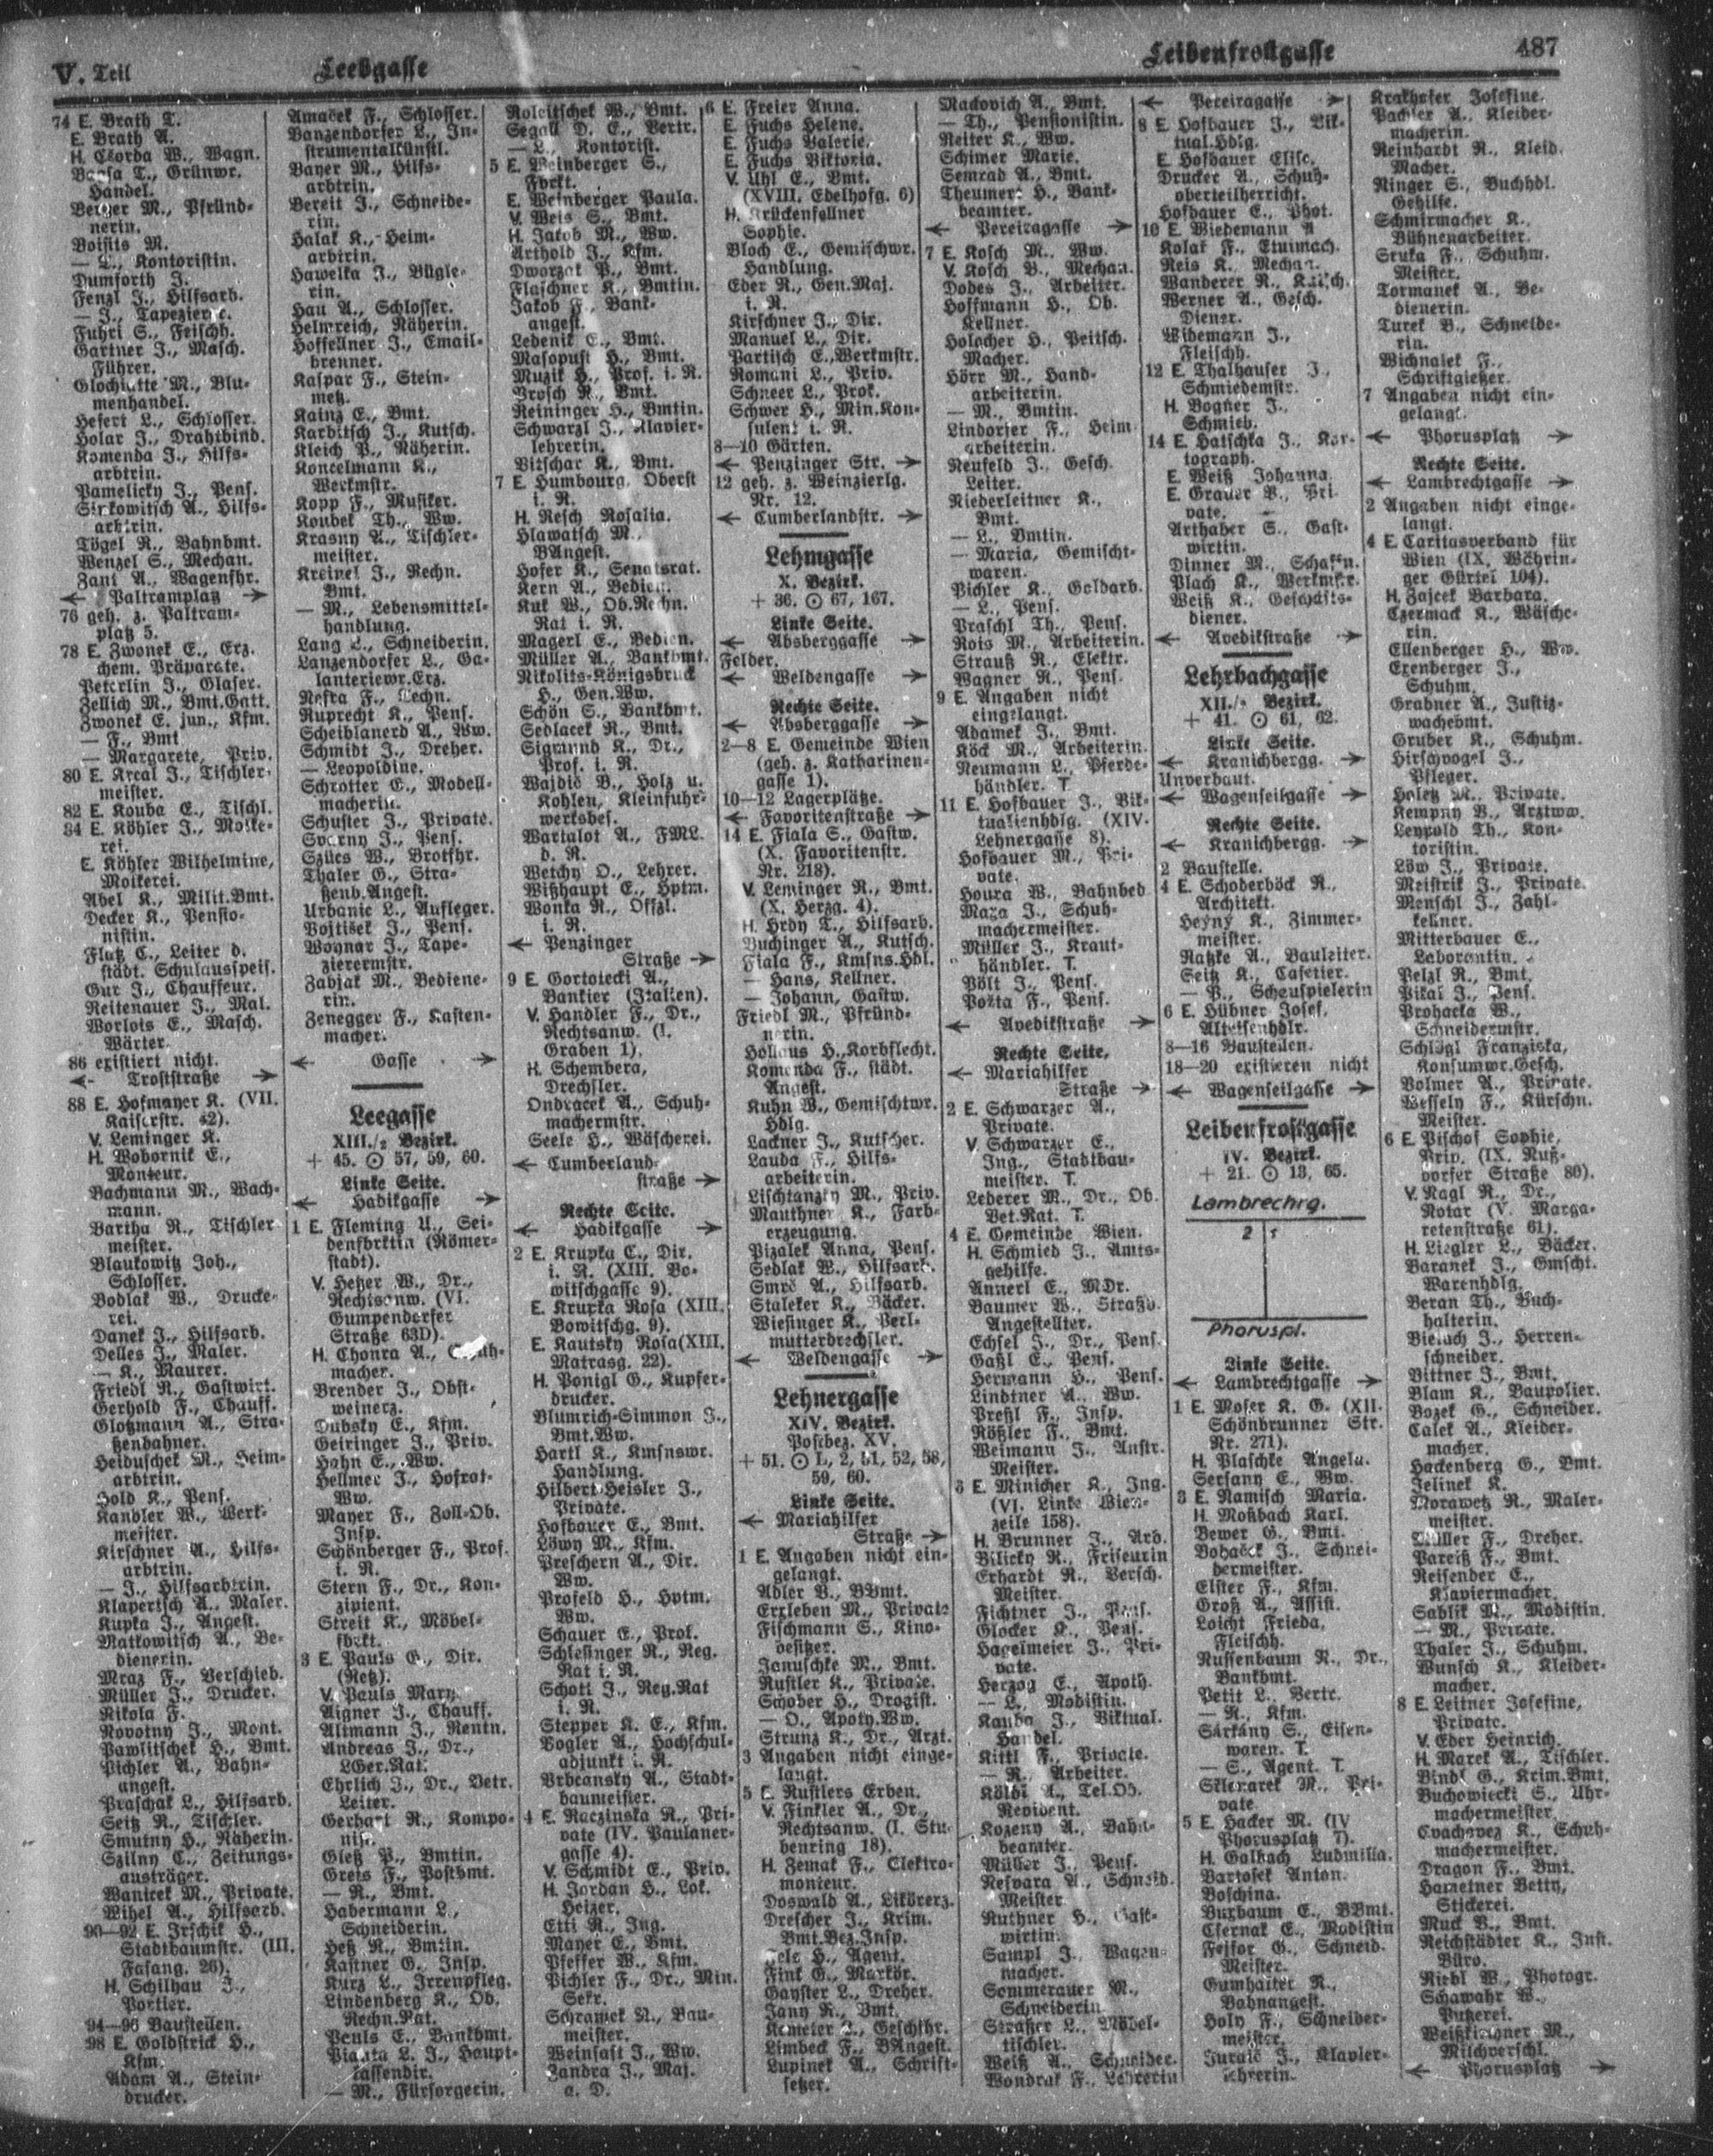 V. Teil
Leebgasse
Leibenfrostgasse
487
74 E. Brath T.
E. Brath A.
H. Czorda W., Wagn.
T., Grünwr.
Handel.
Berger M., Pfründ-
nerin.
Boisits M.
— L., Kontoristin.
Dumforth J.
Fenzl J., Hilfsarb.
— J., Tapezierer.
Fuhri S., Feischh.
Gartner J., Masch.
Führer.
M., Blu-
menhandel.
Hefert L., Schlosser.
Holar J., Drahtbind.
Komenda J., Hilfs-
arbtrin.
Pamelicky J., Pens.
A., Hilfs-
arbtrin.
Tögel R., Bahnbmt.
Wenzel S., Mechan.
Zant A., Wagenfhr.
← Paltramplatz →
76 geh. z. Paltram-
platz 5.
78 E. Zwonek E., Erz.
chem. Präparate.
Peterlin J., Glaser.
Zellich M., Bmt.Gatt.
Zwonek E. jun., Kfm.
— F., Bmt
— Margarete, Priv.
80 E. Kreal J., Tischler-
meister.
82 E. Kouba E., Tischl.
84 E. Köhler J., Molke-
rei.
E. Köhler Wilhelmine,
Molkerei.
Abel K., Milit.Bmt.
Decker K., Pensio-
nistin.
Flatz C., Leiter d.
städt. Schulausspeis.
Gur J., Chauffeur.
Reitenauer J., Mal.
Worlois E., Masch.
Wärter.
86 existiert nicht.
← Troststraße →
88 E. Hofmayer K. (VII.
Kaiserstr. 42).
V. Leminger K.
H. Wobornik E.,
Monteur.
Bachmann M., Wach-
mann.
Bartha R., Tischler
meister.
Blaukowitz Joh.,
Schlosser.
Bodlak W., Drucke-
rei.
Danek J., Hilfsarb.
Delles J., Maler.
— K., Maurer.
Friedl R., Gastwirt.
Gerhold F., Chauff.
Glotzmann A., Stra-
ßenbahner.
Heiduschek M., Heim-
arbtrin.
Hold K., Pens.
Kandler W., Werk-
meister.
Kirschner A., Hilfs-
arbtrin.
— J., Hilfsarbtrin.
Klapertsch A., Maler.
Kupka J., Angest.
Matkowitsch A., Be-
dienerin.
Mraz F., Verschieb.
Müller J., Drucker.
Nikola F.
Novotny J., Mont.
Pawlitschek H., Bmt.
Pichler A., Bahn-
angest.
Praschak L., Hilfsarb.
Seitz R., Tischler.
Smutny H., Näherin.
Szilny C., Zeitungs-
austräger.
Wanicek M., Private.
Wihel A., Hilfsarb.
90—92 E. Irschik H.,
Stadtbaumstr. (III.
Fasang. 26).
H. Schilhau J.,
Portier.
94—96 Baustellen.
98 E. Goldstrick H.,
Kfm.
Adam A., Stein-
drucker.
Amacek F., Schlosser.
Banzendorfer L., In-
strumentalkünstl.
Bayer M., Hilfs-
arbtrin.
Bereit J., Schneide-
rin.
Halak K., Heim-
arbtrin.
Hawelka J., Bügle-
rin.
Hau A., Schlosser.
Helmreich, Näherin.
Hoffellner J., Email-
brenner.
Kaspar F., Stein-
metz.
Kainz E., Bmt.
Karbitsch J., Kutsch.
Kleich P., Näherin.
Koncelmann K.,
Werkmstr.
Kopp F., Musiker.
Koubek Th., Ww.
Krasny A., Tischler-
meister.
Kreipel J., Rechn.
Bmt.
— M., Lebensmittel-
handlung.
Lang L., Schneiderin.
Lanzendorfer L., Ga-
lanteriewr.Erz.
Resra F., Rechn.
Ruprecht K., Pens.
Scheiblanerd A., Ww.
Schmidt J., Dreher.
— Leopoldine.
Schrotter E., Modell-
macherin.
Schuster J., Private.
Svarny J., Pens.
Szücs W., Brotfhr.
Thaler G., Stra-
ßenb.Angest.
Urbanic L., Aufleger.
Vojtisek J., Pens.
Woynar J., Tape-
zierermstr.
Zabjak M., Bediene-
rin.
Zenegger F., Kasten-
macher.
← Gasse →
Leegasse
XIII./2 Bezirk.
+ 45. ⊙ 57, 59, 60.
Linke Seite.
← Hadikgasse →
1 E. Fleming U., Sei-
denfbrktin (Römer-
stadt).
V. Hetzer W., Dr.,
Rechtsanw. (VI.
Gumpendorfer
Straße 63D).
H. Chonra A., Schuh-
macher.
Brender J., Obst-
weinerz.
Dubsky E., Kfm.
Geiringer J., Priv.
Hahn E., Ww.
Hellmer J., Hofrat-
Ww.
Mayer F., Zoll-Ob.
Insp.
Schönberger F., Prof.
i. R.
Stern F., Dr., Kon-
zipient.
Streit K., Möbel-
fbrkt.
3 E. Pauls G., Dir.
(Retz).
V. Pauls Mary.
Aigner J., Chauff.
Altmann J., Rentn.
Andreas J., Dr.,
LGer.Rat.
Ehrlich J., Dr., Vetr.
Leiter.
Gerhart R., Kompo-
nist.
Gletz P., Bmtin.
Greis F., Postbmt.
— R., Bmt.
Habermann L.,
Schneiderin.
Hetz R., Bmtin.
Kastner G., Insp.
Kurz L., Irrenpfleg.
Lindenberg K., Ob.
Rechn.Rat.
Pauls E., Bankbmt.
L. J., Haupt-
kassendir.
— M., Fürsorgerin.
Roleitschek W., Bmt.
Segall D. E., Vertr.
— L., Kontorist.
5 E. Weinberger S.,
Fbrkt.
E. Weinberger Paula.
V. Weis S., Bmt.
H. Jakob M., Ww.
Arthold J., Kfm.
Dworzak P., Bmt.
Flaschner K., Bmtin.
Jakob F., Bank-
angest.
Ledenik E., Bmt.
Masopust H., Bmt.
Muzik H., Prof. i. R.
Prosch R., Bmt.
Reininger H., Bmtin.
Schwarzl J., Klavier-
lehrerin.
Vitschar K., Bmt.
7 E. Humbourg, Oberst
i. R.
H. Resch Rosalia.
Hlawatsch M.,
BAngest.
Hofer K., Senatsrat.
Kern A., Bedien.
Kuk W., Ob.Rechn.
Rat i. R.
Magerl E., Bedien.
Müller A., Bankbmt.
Nikolits-Königsbruck
H., Gen.Ww.
Schön S., Bankbmt.
Sedlacek R., Bmt.
Sigmund K., Dr.,
Prof. i. R.
Wajdic B., Holz u.
Kohlen, Kleinfuhr-
werksbes.
Wartalot A., FML.
d. R.
Wetchy O., Lehrer.
Wißhaupt E., Hptm.
Wonka R., Offzl.
i. R.
← Penzinger
Straße →
9 E. Gortotecki A.,
Bankier (Italien).
V. Handler F., Dr.,
Rechtsanw. (I.
Graben 1).
H. Schembera,
Drechsler.
Ondracek A., Schuh-
machermstr.
Seele H., Wäscherei.
← Cumberland-
straße →
Rechte Seite.
← Hadikgasse →
2 E. Krupka E., Dir.
i. R. (XIII. Bo-
witschgasse 9).
E. Krupka Rosa (XIII.
Bowitschg. 9).
E. Kautsky Rosa (XIII.
Matrasg. 22).
H. Ponigl G., Kupfer-
drucker.
Blumrich-Simmon J.,
Bmt.Ww.
Hartl K., Kmsnswr.
Handlung.
Hilbert-Heisler J.,
Private.
Hofbauer E., Bmt.
Löwy M., Kfm.
Preschern A., Dir.
Ww.
Profeld H., Hptm.
Ww.
Schauer E., Prok.
Schlesinger R., Reg.
Rat i. R.
Schott J., Reg.Rat
i. R.
Stepper K. E., Kfm.
Vogler A., Hochschul-
adjunkt i. R.
Vrbcansky A., Stadt-
baumeister.
4 E. Raczinska R., Pri-
vate (IV. Paulaner-
gasse 4).
V. Schmidt E., Priv.
H. Jordan H., Lok.
Heizer.
Etti R., Ing.
Mayer E., Bmt.
Pfeffer W., Kfm.
Pichler F., Dr., Min.
Sekr.
Schramek N., Bau-
meister.
Weinfast J., Ww.
Zandra J., Maj.
a. D.
6 E. Freier Anna.
E. Fuchs Helene.
E. Fuchs Valerie.
E. Fuchs Viktoria.
V. Uhl E., Bmt.
(XVIII. Edelhofg. 6)
H. Krückenfellner
Sophie.
Bloch E., Gemischwr.
Handlung.
Eder R., Gen.Maj.
i. R.
Kirschner J., Dir.
Manuel L., Dir.
Partisch E., Werkmstr.
Romani L., Priv.
Schneer L., Prok.
Schwer H., Min.Kon-
sulent i. R.
8—10 Gärten.
← Penzinger Str. →
12 geh. z. Weinzierlg.
Nr. 12.
← Cumberlandstr. →
Lehmgasse
X. Bezirk.
+ 36. ⊙ 67, 167.
Linke Seite.
← Absberggasse →
Felder.
← Weldengasse →
Rechte Seite.
← Absberggasse →
2—8 E. Gemeinde Wien
(geh. z. Katharinen-
gasse 1).
10—12 Lagerplätze.
← Favoritenstraße →
14 E. Fiala S., Gastw.
(X. Favoritenstr.
Nr. 218).
V. Leminger R., Bmt.
(X. Herzg. 4).
H. Hrdy T., Hilfsarb.
Buchinger A., Kutsch.
Fiala F., Kmsns.Hdl.
— Hans, Kellner.
— Johann, Gastw.
Friedl M., Pfründ-
nerin.
Hollaus H., Korbflecht.
Komenda F., städt.
Angest.
Kuhn W., Gemischtwr.
Hdlg.
Lackner J., Kutscher.
Lauda F., Hilfs-
arbeiterin.
M., Priv.
Mauthner K., Farb-
erzeugung.
Pizalek Anna, Pens.
Sedlak W., Hilfsarb.
Smrc A., Hilfsarb.
Staleker K., Bäcker.
Wiesinger K., Perl-
mutterdrechsler.
← Weldengasse →
Lehnergasse
XIV. Bezirk.
Postbez. XV.
+ 51. ⊙ L, 2, 51, 52, 58,
59, 60.
Linke Seite.
← Mariahilfer
Straße →
1 E. Angaben nicht ein-
gelangt.
Adler V., BBmt.
Erxleben M., Private
Fischmann S., Kino-
besitzer.
Januschke M., Bmt.
Rustler K., Private.
Schober H., Drogist.
— O., Apoth.Ww.
Strunz K., Dr., Arzt.
3 Angaben nicht einge-
langt.
5 E. Rustlers Erben.
V. Finkler A., Dr.,
Rechtsanw. (I. Stu-
benring 18).
H. Zemak F., Elektro-
monteur.
Doswald A., Likörerz.
Drescher J., Krim.
Bmt.Bez.Insp.
H., Agent.
Fink G., Markör.
Gayster L., Dreher.
Jany R., Bmt.
Kemeter J., Geschfhr.
Limbeck F., BAngest.
Lupinek A., Schrift-
setzer.
Mackovich A., Bmt.
— Th., Pensionistin.
Reiter K., Ww.
Schimer Marie.
Semrad A., Bmt.
Theumer H., Bank-
beamter.
← Pereiragasse →
7 E. Kosch M., Ww.
V. Kosch B., Mechan.
Dodes J., Arbeiter.
Hoffmann H., Ob.
Kellner.
Holacher H., Peitsch.
Macher.
Hörr M., Hand-
arbeiterin.
— M., Bmtin.
Lindorfer F., Heim
arbeiterin.
Neufeld J., Gesch.
Leiter.
Niederleitner K.,
Bmt.
— L., Bmtin.
— Maria, Gemischt-
waren.
Pichler K., Goldarb.
— L., Pens.
Praschl Th., Pens.
Rois M., Arbeiterin.
Strauß R., Elektr.
Wagner R., Pens.
9 E. Angaben nicht
eingelangt.
Adamek J., Bmt.
Köck M., Arbeiterin.
Neumann L., Pferde-
händler. T.
11 E. Hofbauer J., Vik-
tualienhdlg. (XIV.
Lehnergasse 8).
Hofbauer M., Pri-
vate.
Houra W., Bahnbed.
Maza J., Schuh-
machermeister.
Müller J., Kraut-
händler. T.
Pölt J., Pens.
Pozta F., Pens.
← Avedikstraße →
Rechte Seite.
← Mariahilfer
Straße →
2 E. Schwarzer A.,
Private.
V. Schwarzer E.,
Ing., Stadtbau-
meister. T.
Lederer M., Dr., Ob.
Vet.Rat. T.
4 E. Gemeinde Wien.
H. Schmied J., Amts-
gehilfe.
Annerl E., MDr.
Baumer W., Straßb.
Angestellter.
Echsel J., Dr., Pens.
Gaßl E., Pens.
Hermann H., Pens.
Lindtner A., Ww.
Preßl F., Insp.
Rößler F., Bmt.
Weimann J., Anstr.
Meister.
6 E. Minicher K., Ing.
(VI. Linke Wien-
zeile 158).
H. Brunner J., Arb.
Bilicky R., Friseurin
Erhardt R., Versch.
Meister.
Fichtner J., Pens.
Glocker K., Pens.
Hagelmeier J., Pri-
vate.
Herzog E., Apoth.
— L., Modistin.
Kauba J., Viktual.
Handel.
Kittl F., Private.
— R., Arbeiter.
Köldi A., Tel.Ob.
Revident.
Kozeny A., Bahn-
beamter.
Müller J., Pens.
Resvara A., Schneid.
Meister
Ruthner H., Gast-
wirtin.
Sampl J., Wagen-
macher.
Sommerauer M.,
Schneiderin
Straßer L., Möbel-
tischler.
Weiß A., Schneider.
Wondrak F., Lehrerin
← Pereiragasse →
8 E. Hofbauer J., Vik-
tual.Hdlg.
E. Hofbauer Elise.
Drucker A., Schuh-
oberteilherricht.
Hofbauer E., Phot.
10 E. Wiedemann A
Kolar F., Etuimach.
Reis K., Mechan.
Wanderer R., Kürsch.
Werner A., Gesch.
Diener.
Widemann J.,
Fleischh.
12 E. Thalhauser J.,
Schmiedemstr.
H. Bogner J.,
Schmied.
14 E. Hatschka J., Kar-
tograph.
E. Weiß Johanna.
E. Grauer B., Pri-
vate.
Arthaber S., Gast-
wirtin.
Dinner M., Schaffn.
Plach K., Werkmstr.
Weiß K., Geschäfts-
diener.
← Avedikstraße →
Lehrbachgasse
XII./2 Bezirk.
+ 41. ⊙ 61, 62.
Linke Seite.
← Kranichbergg. →
Unverbaut.
← Wagenseilgasse →
Rechte Seite.
← Kranichbergg. →
2 Baustelle.
4 E. Schoderböck R.,
Architekt.
Heyny K., Zimmer-
meister.
Ratzke A., Bauleiter.
Seitz K., Cafetier.
— P., Schauspielerin
6 E. Hübner Josef,
Alteisenhdlr.
8—16 Baustellen.
18—20 existieren nicht
← Wagenseilgasse →
Leibenfrostgasse
IV. Bezirk.
+ 21. ⊙ 13, 65.
Lambrechtg.
2 1
Phoruspl.
Linke Seite.
← Lambrechtgasse →
1 E. Moser K. G. (XII.
Schönbrunner Str.
Nr. 271).
H. Plaschke Angela.
Sersany E., Ww.
3 E. Ramisch Maria.
H. Moßbach Karl.
Bewer G., Bmt.
Bohacek J., Schnei-
dermeister.
Elster F., Kfm.
Groß A., Assist.
Loicht Frieda,
Fleischh.
Nussenbaum N., Dr.,
Bankbmt.
Petit L., Vertr.
— R., Kfm.
Sarkany S., Eisen-
waren. T.
— S., Agent. T.
Sklenarek M., Pri-
vate
5 E. Hacker M. (IV
Phorusplatz 7).
H. Galbach Ludmilla.
Bartosek Anton.
Boschina.
Buxbaum E., BBmt.
Csernak E., Modistin
Fejfor G., Schneid.
Meister.
Gumhalter R.,
Bahnangest.
Holy F., Schneider-
meister.
Juraic J., Klavier-
lehrerin.
Krakhofer Josefine.
Pachler A., Kleider-
macherin.
Reinhardt R., Kleid.
Macher.
Ringer S., Buchhdl.
Gehilfe.
Schmirmacher K.,
Bühnenarbeiter.
Sruka F., Schuhm.
Meister.
Tormanek A., Be-
dienerin.
Turek B., Schneide-
rin.
Wichnalek F.,
Schriftgießer.
7 Angaben nicht ein-
gelangt.
← Phorusplatz →
Rechte Seite.
← Lambrechtgasse →
2 Angaben nicht einge-
langt.
4 E. Caritasverband für
Wien (IX. Währin-
ger Gürtel 104).
H. Zajcek Barbara.
Czermack K., Wäsche-
rin.
Ellenberger H., Ww.
Exenberger J.,
Schuhm.
Grabner A., Justiz-
wachebmt.
Gruber K., Schuhm.
Hirschvogel J.,
Pfleger.
Holetz M., Private.
Kempny B., Arztww.
Leypold Th., Kon-
toristin.
Löw J., Private.
Meistrik J., Private.
Menschl J., Zahl-
kellner.
Mitterbauer E.,
Laborantin.
Pelzl R., Bmt.
Pikal J., Pens.
Prohacka W.,
Schneidermstr.
Schlögl Franziska,
Konsumwr.Gesch.
Volmer A., Private.
Wessely F., Kürschn.
Meister.
6 E. Pischof Sophie,
Priv. (IX. Nuß-
dorfer Straße 80).
V. Nagl R., Dr.,
Notar (V. Marga-
retenstraße 61).
H. Liegler L., Bäcker.
Baranek J., Gmscht.
Warenhdlg.
Beran Th., Buch-
halterin.
Bielach J., Herren-
schneider.
Bittner J., Bmt.
Blam K., Baupolier.
Bozek G., Schneider.
Calek A., Kleider-
macher.
Hackenberg G., Bmt.
Jelinek K.
Morawetz R., Maler-
meister.
Müller F., Dreher.
Pareiß F., Bmt.
Reisender E.,
Klaviermacher.
Sablik M., Modistin.
— M., Private.
Thaler J., Schuhm.
Wunsch K., Kleider-
macher.
8 E. Leitner Josefine,
Private.
V. Eder Heinrich.
H. Marek A., Tischler.
Bindl G., Krim.Bmt.
Buchowiecki S., Uhr-
machermeister.
Cvachovez K., Schuh-
machermeister.
Dragon F., Bmt.
Hametner Betty,
Stickerei.
Muck B., Bmt.
Reichstädter K., Inst.
Büro.
Riedl W., Photogr.
Schawahr W.,
Putzerei.
M.,
Milchverschl.
← Phorusplatz →